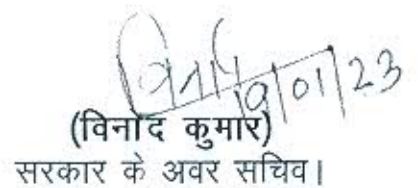 19/01/23
(विनोद कुमार)
सरकार के अवर सचिव।